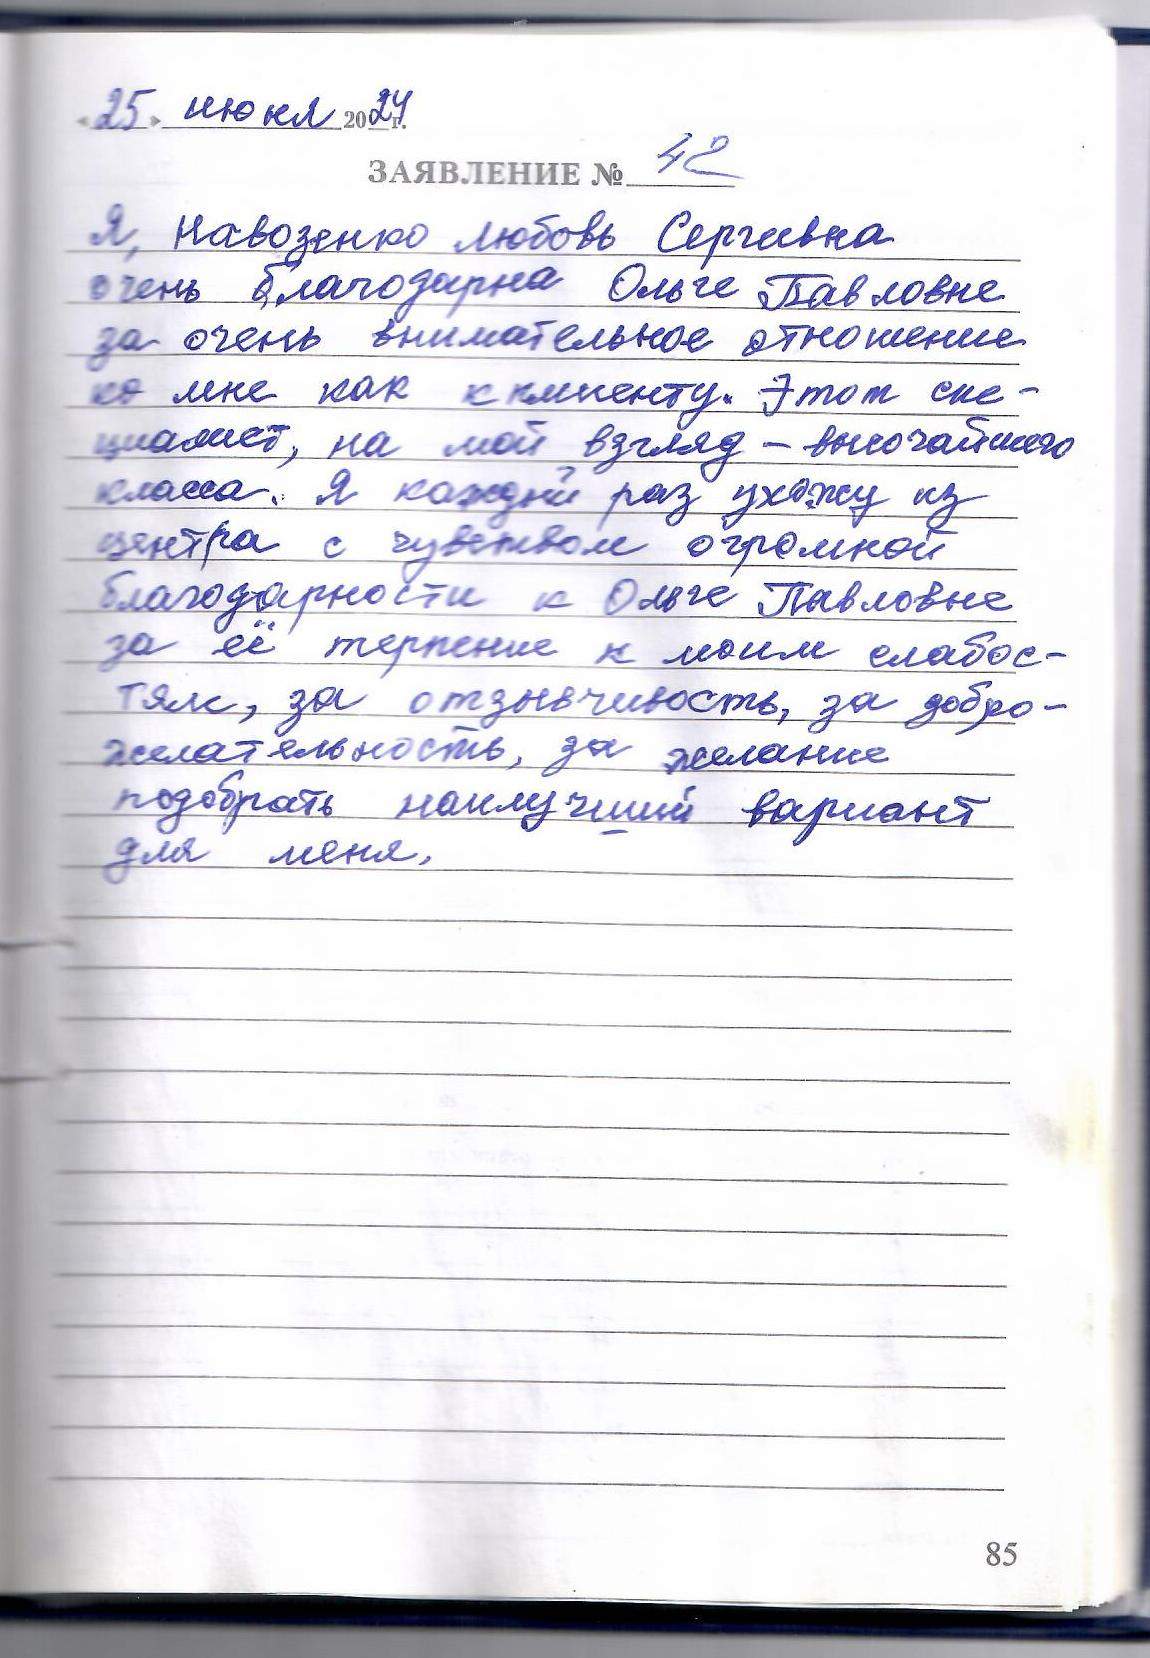 «25» июня 2024 г.
ЗАЯВЛЕНИЕ № 42
Я, Навозенко Любовь Сергеевна
очень благодарна Ольге Павловне
за очень внимательное отношение
ко мне как к клиенту. Этот спе-
циалист, на мой взгляд – высочайшего
класса. Я каждый раз ухожу из
центра с чувством огромной
благодарности к Ольге Павловне
за её терпение к моим слабос-
тям, за отзывчивость, за добро-
желательность, за желание
подобрать наилучший вариант
для меня.
85